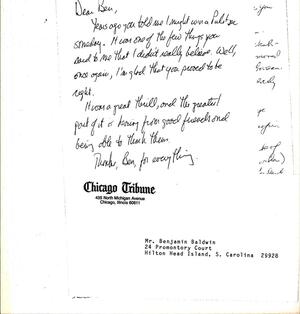 Dear Ben,
Years ago you told me I might win a Pulitzer
someday. It was one of the few things you
said to me that I didn't really believe. Well,
once again, I'm glad that you proved to be
right.
It was a great thrill, and the greatest
part of it is hearing from good friends and
being able to thank them.
Thanks, Ben, for everything.
Chicago Tribune
435 North Michigan Avenue
Chicago, Illinois 60611
Mr. Benjamin Baldwin
24 Promontory Court
Hilton Head Island, S. Carolina 29928